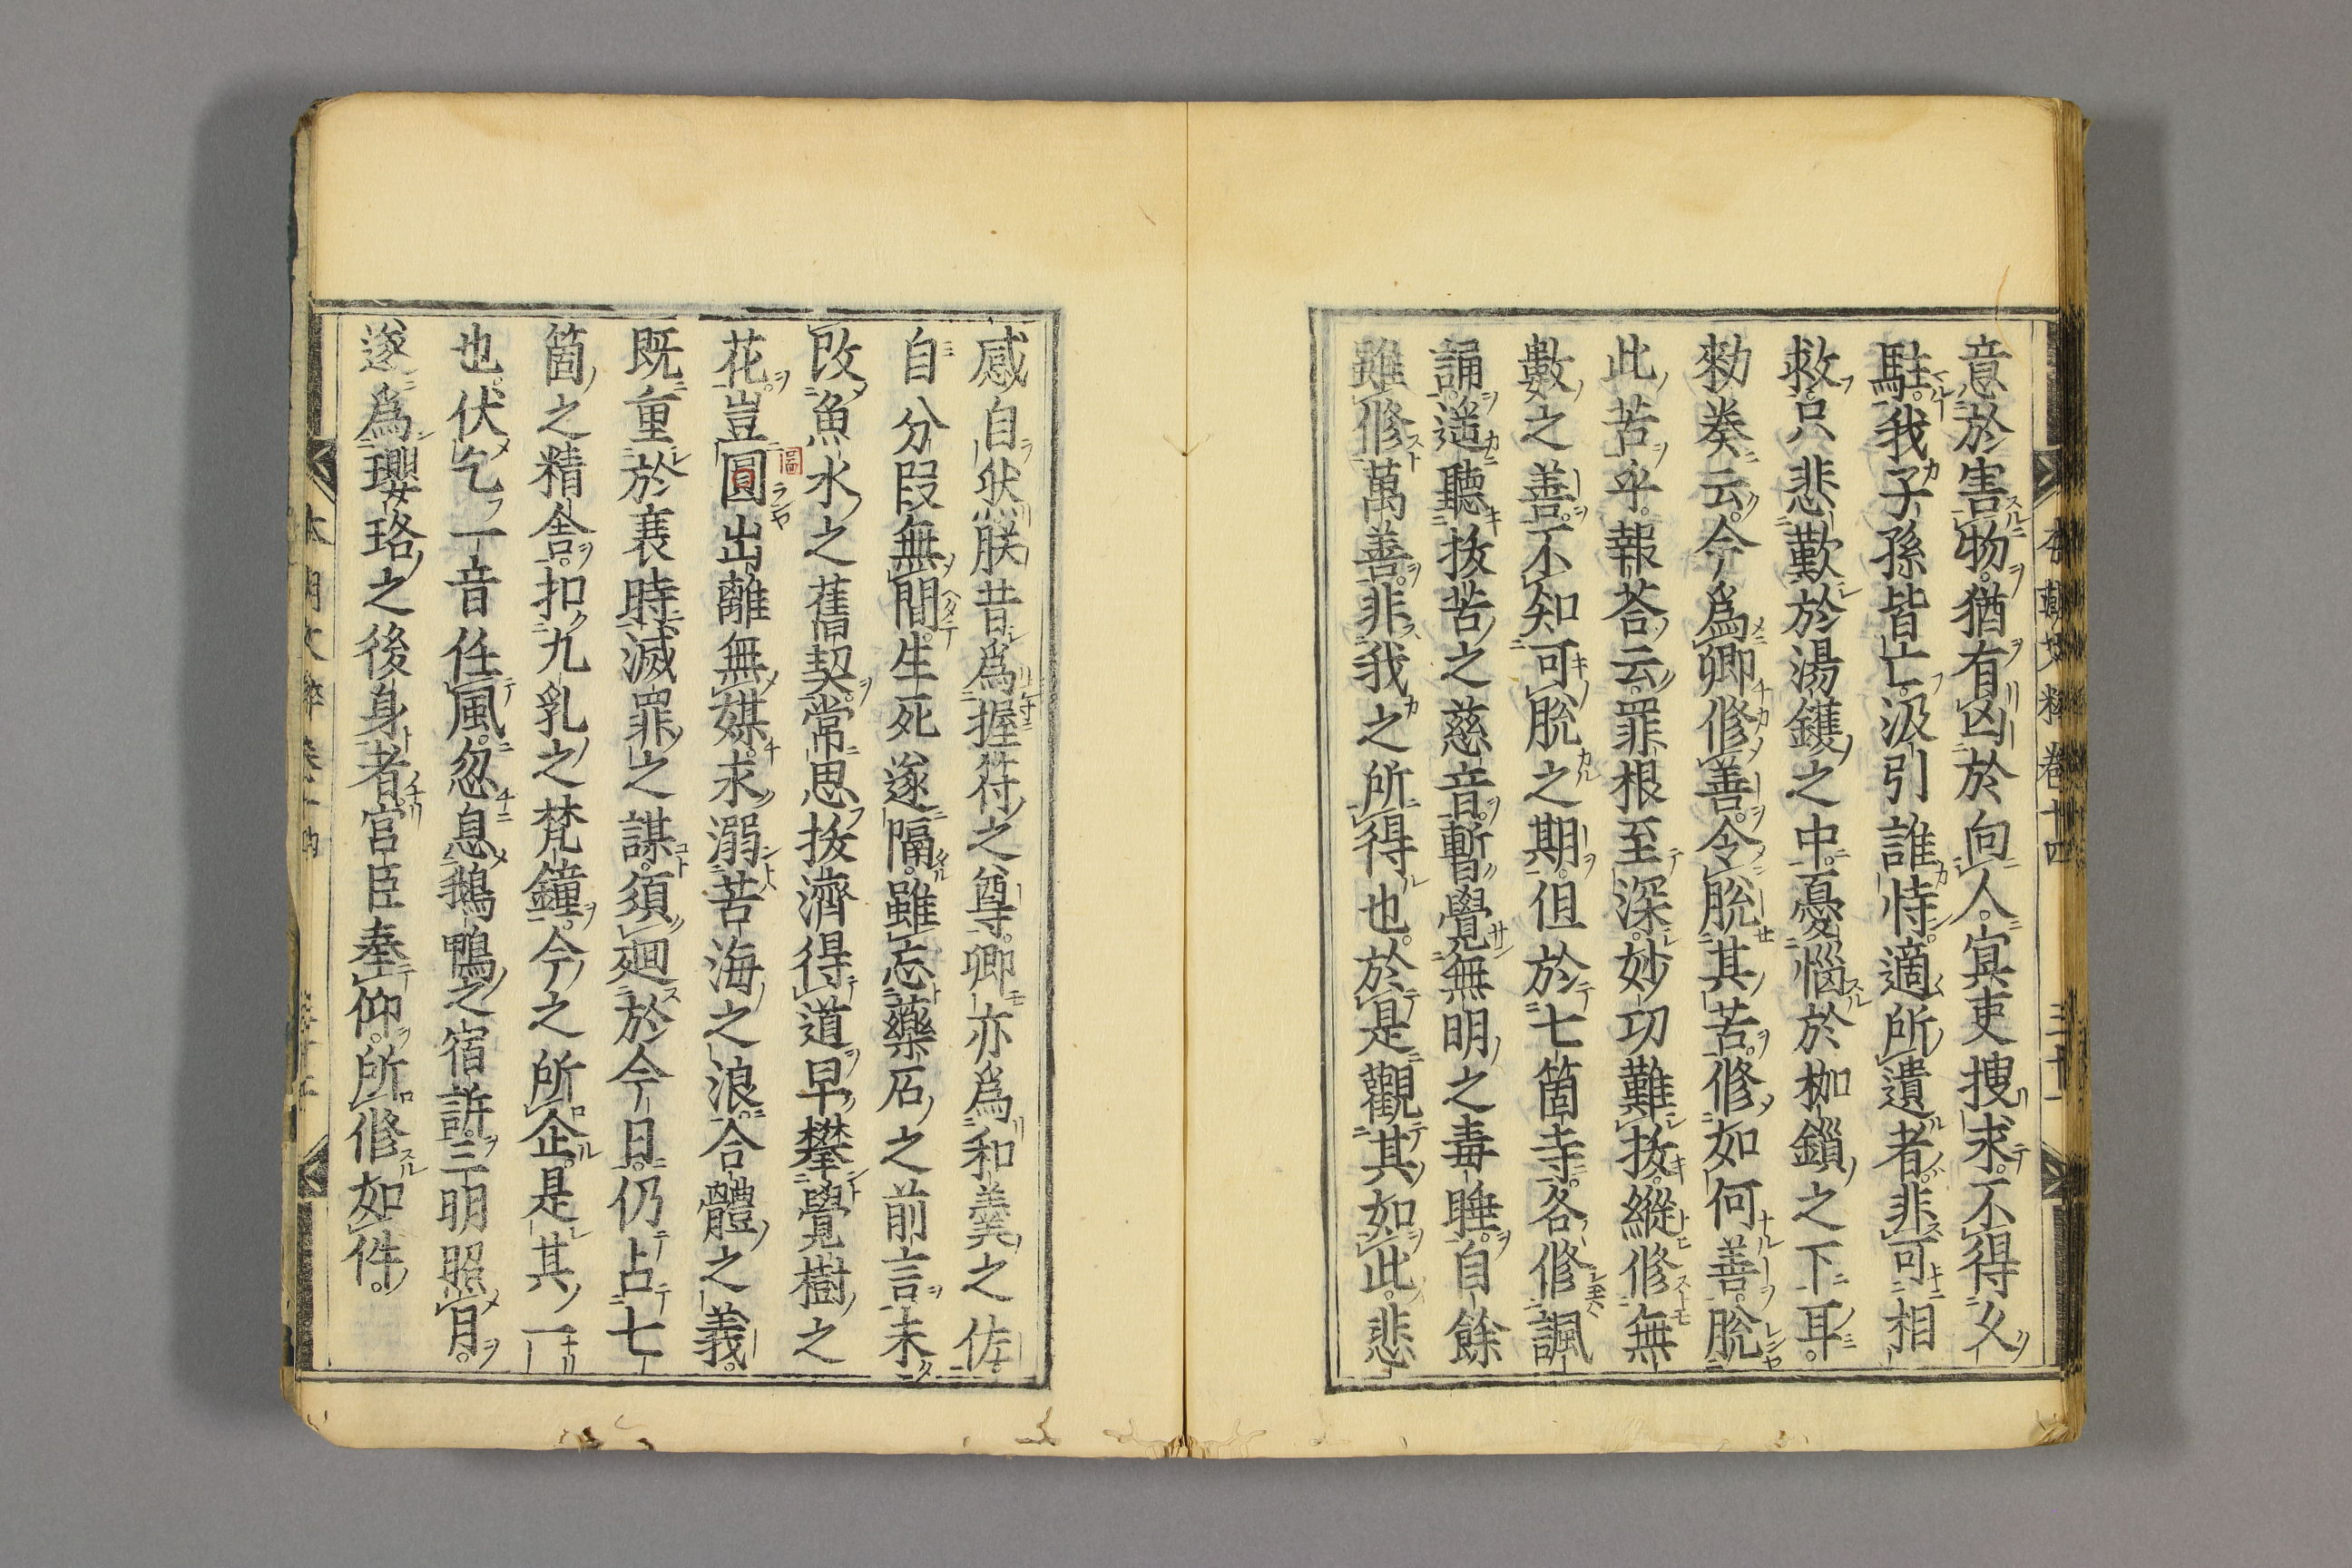 意於害物。猶有凶於向人。冥吏捜求。不得久
駐。我子孫皆亡。汲引誰恃。適所遺者。非可相
救。只悲歎於湯鑊之中。憂惱於枷鎖之下耳。
勅奏云。今爲卿修善。令脱其苦。修如何善。脱
此苦乎。報荅云。罪根至深。妙功難拔。縱修無
數之善。不知可脱之期。但於七箇寺。各修諷
誦。遥聽拔苦之慈音。暫覺無明之毒睡。自餘
雖修萬善。非我之所得也。於是觀其如此。悲
本朝文粹 卷十四 三十一
感自然。朕昔爲握符之尊。卿亦爲和羹之佐。
自分叚無間。生死遂隔。雖忘藥石之前言。未
改魚水之舊契。常思拔濟得道。早攀覺樹之
花。豈圓出離無媒。求溺苦海之浪。合體之義。
圖
既重於衰時。滅罪之謀。須廻於今日。仍占七
箇之精舎。扣九乳之梵鐘。今之所企。是其一
也。伏乞一音任風。忽息鵝鴨之宿訴。三明照月。
遂爲瓔珞之後身者。官臣奉仰。所修如件。